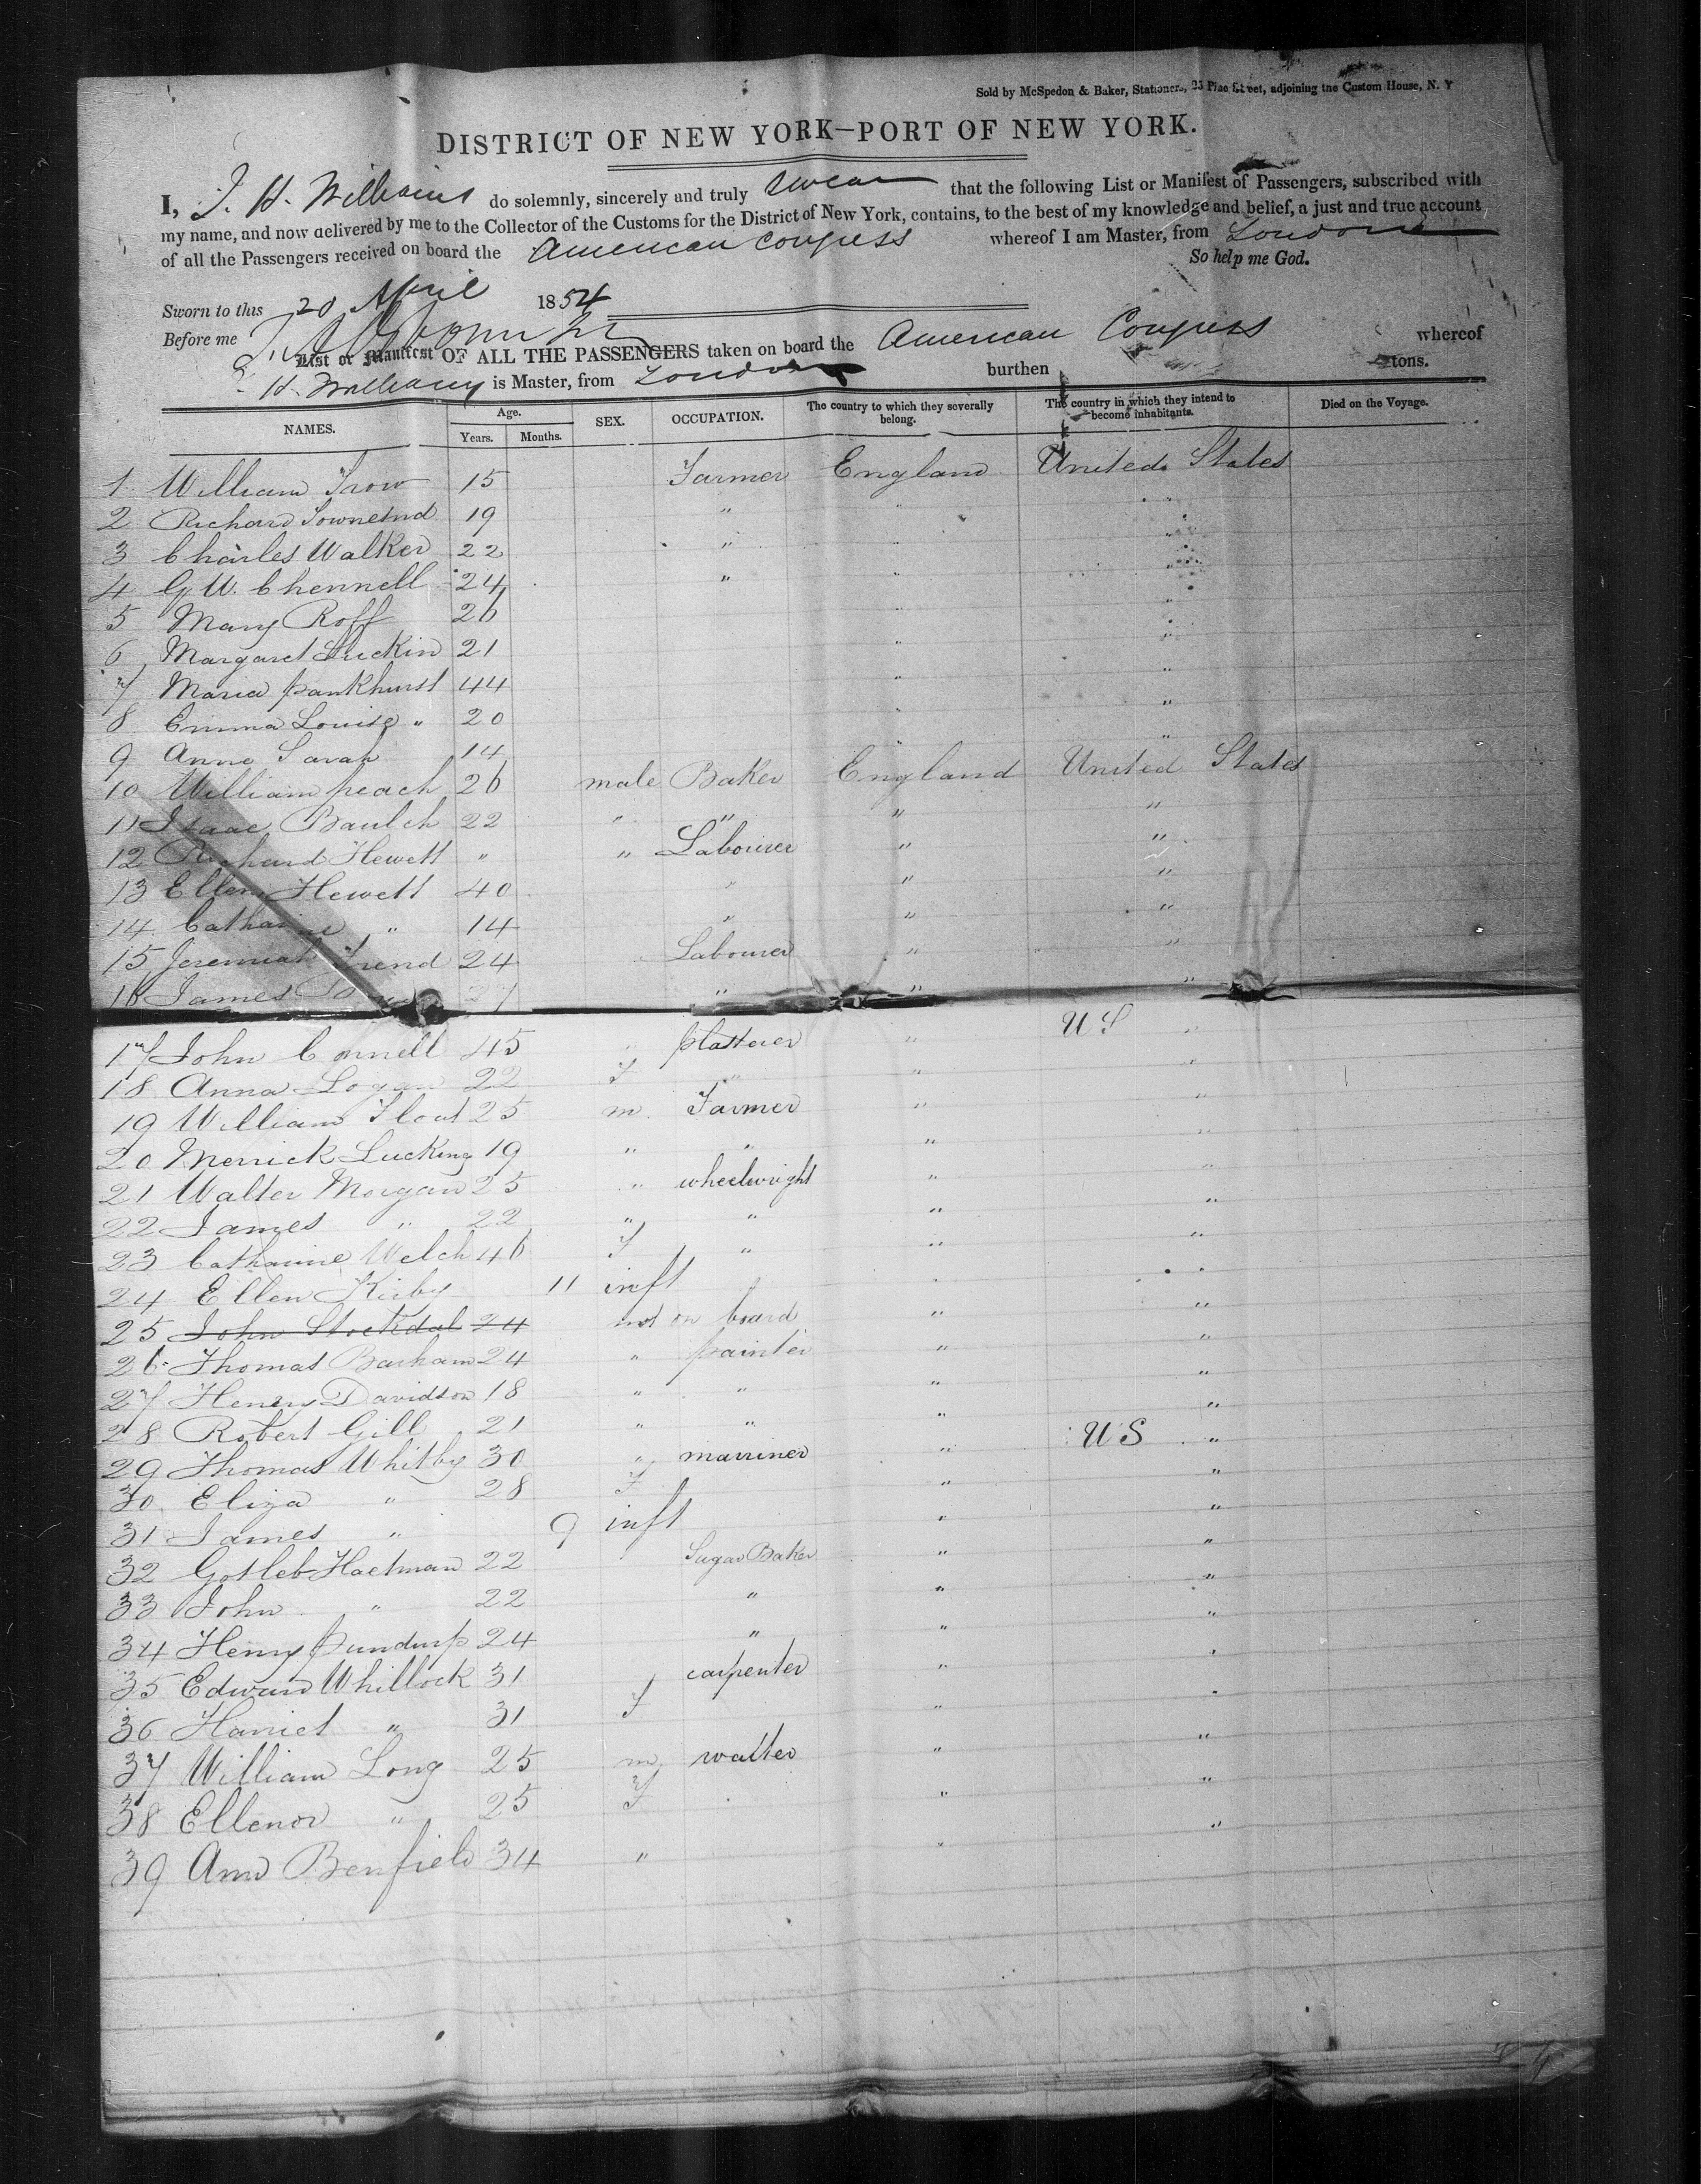 Sold by McSpedon & Baker, Stationers, 25 Pine Street, adjoining the Custom House, N. Y
DISTRICT OF NEW YORK—PORT OF NEW YORK.
I, J. H. Williams do solemnly, sincerely and truly swear that the following List or Manifest of Passengers, subscribed with
my name, and now delivered by me to the Collector of the Customs for the District of New York, contains, to the best of my knowledge and belief, a just and true account
of all the Passengers received on board the American Congress whereof I am Master, from London
So help me God.
Sworn to this 20 April 1854
Before me
List or Manifest OF ALL THE PASSENGERS taken on board the American Congress whereof
H. Williams is Master, from London burthen tons.
NAMES. Age. Years. Months. SEX. OCCUPATION. The country to which they severally belong. The country in which they intend to become inhabitants. Died on the Voyage.
1 William Trow 15 Farmer England United States
2 Richard Townetnd 19 " " "
3 Charles Walker 22 " " "
4 G W. Chennell 24 " " "
5 Mary Roff 26 "
6 Margaret Luckin 21 " "
7 Maria pankhurst 44 " "
8 Emma Louisa " 20 " "
9 Anne Sarah 14 " "
10 William peach 26 male Baker England United States
11 Isaac Baulch 22 " " " "
12 Richard Hewett " " Labourer " "
13 Ellen Hewett 40 " " "
14 Catharine " 14 " " "
15 Jeremiah Frend 24 Labourer " "
16 James 27 " " "
17 John Connell 45 " plasterer " U S "
18 Anna Logan 22 F " " "
19 William Flout 25 m Farmer " "
20 Merrick Lucking 19 " " " "
21 Walter Morgan 25 " wheelwright " "
22 James " 22 " " " "
23 Catharine Welch 46 F " " "
24 Ellen Kirby 11 inft " "
25 John Stockdal 24 not on board " "
26 Thomas Barham 24 " painter " "
27 Henry Davidson 18 " " " "
28 Robert Gill 21 " " " "
29 Thomas Whitby 30 " marriner " U S "
30 Eliza " 28 F " "
31 James " 9 inft " "
32 Gotleb Hactman 22 Sugar Baker " "
33 John " 22 " " "
34 Henry 24 " " "
35 Edward Whillock 31 carpenter " "
36 Harriet " 31 F " "
37 William Long 25 m waiter " "
38 Ellenor " 25 F " "
39 Ann Benfield 34 " " "